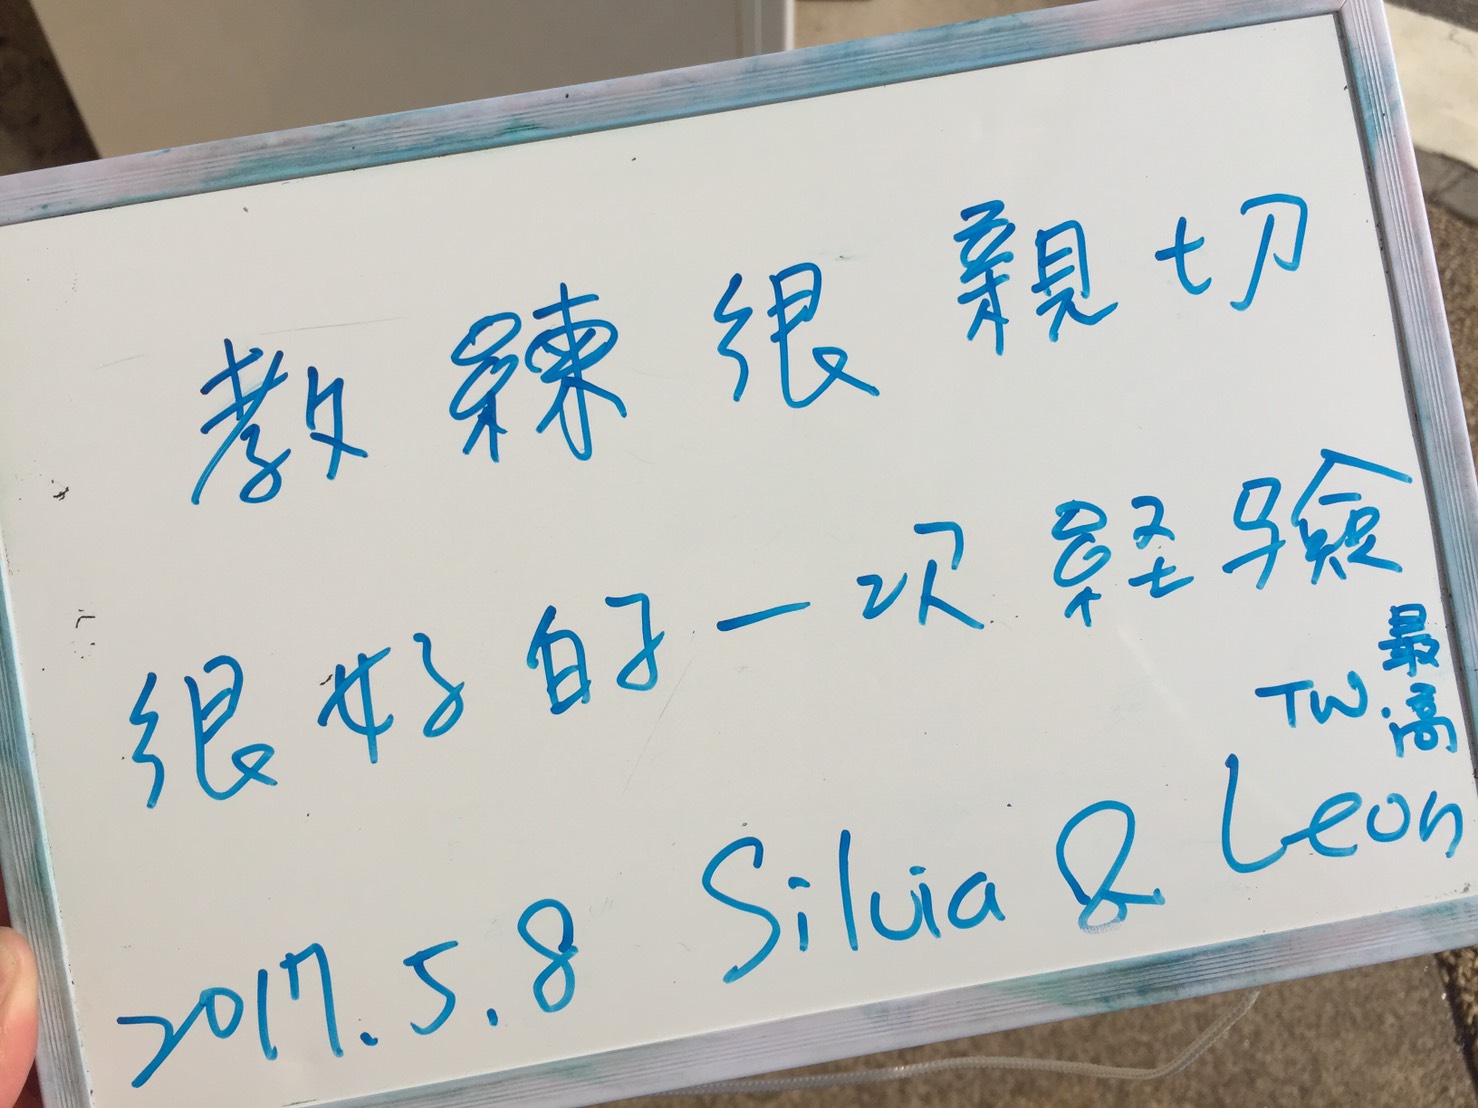 教練很親切
很好的一次経験
TW.最高
2017.5.8 Silvia & Leon